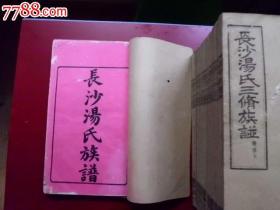 7788.com
長沙湯氏族譜
長沙湯氏三修族譜